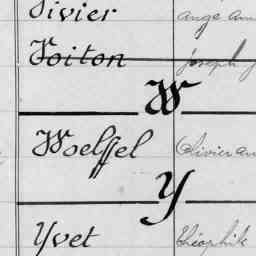 Vivier ange
Voiton Joseph
W
Woelffel Olivier
Y
Yvet Théophile